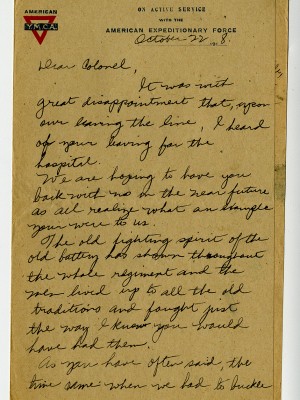 AMERICAN
Y.M.C.A.
ON ACTIVE SERVICE
WITH THE
AMERICAN EXPEDITIONARY FORCE
October 22 191 8.
Dear Colonel,
It was with
great disappointment that, upon
our leaving the line, I heard
of your leaving for the
hospital.
We are hoping to have you
back with us in the near future
as all realize what an example
your were to us.
The old fighting spirit of the
old battery has shown throughout
the whole regiment and the
men lived up to all the old
traditions and fought just
the way I knew you would
have had them.
As you have often said, the
time came when we had to buckle